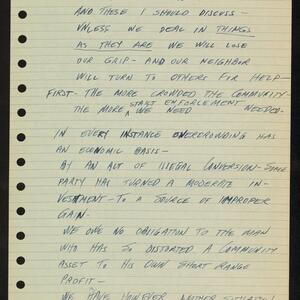 AND THESE I SHOULD DISCUSS—
UNLESS WE DEAL IN THINGS
AS THEY ARE WE WILL LOSE
OUR GRIP- AND OUR NEIGHBOR
WILL TURN TO OTHERS FOR HELP-
FIRST- THE MORE CROWDED THE COMMUNITY-
THE MORE STATE ENFORCEMENT WE NEED NEEDED-
IN EVERY INSTANCE OVERCROWDING HAS
AN ECONOMIC BASIS-
BY AN ACT OF ILLEGAL CONVERSION-SOME
PARTY HAS TURNED A MODERATE IN-
VESTMENT- TO A SOURCE OF IMPROPER
GAIN-
WE OWE NO OBLIGATION TO THE MAN
WHO HAS SO DISTORTED A COMMUNITY
ASSET TO HIS OWN SHORT RANGE
PROFIT-
WE HAVE HOWEVER ANOTHER